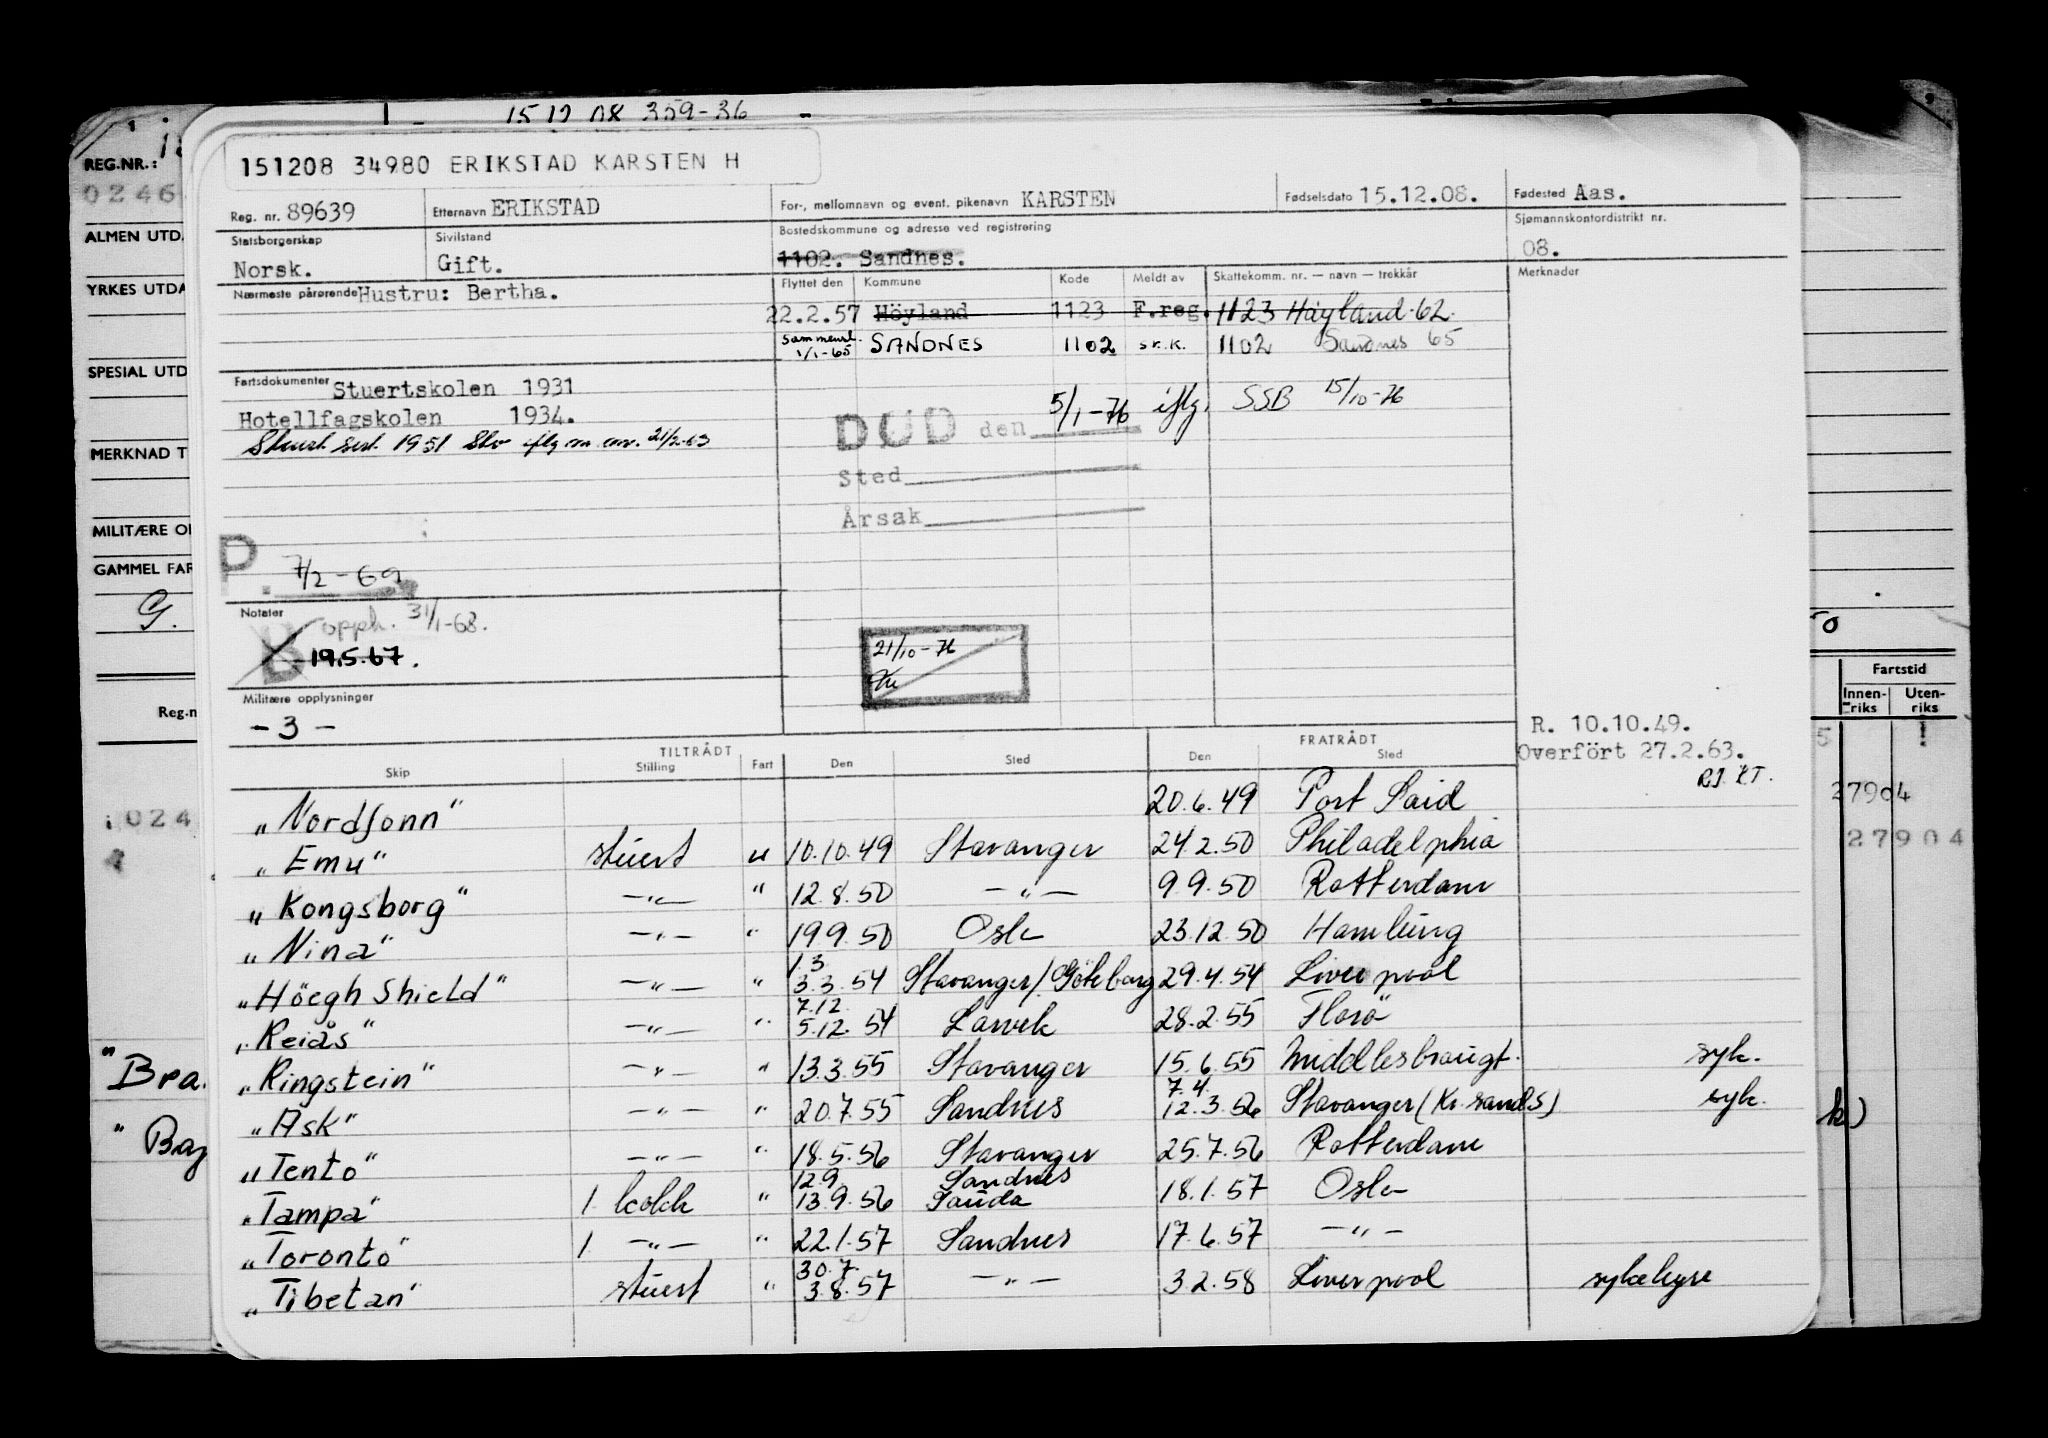 15 12 08 359-36
151208 34980 ERIKSTAD KARSTEN H
REG.NR.:
0246
Reg. nr. 89639 Etternavn ERIKSTAD For-, mellomnavn og event. pikenavn KARSTEN Fødselsdato 15.12.08. Fødested Aas.
ALMEN UTDA
Statsborgerskap Norsk. Sivilstand Gift. Bostedskommune og adresse ved registrering 1102. Sandnes. Sjømannskontordistrikt nr. 08.
YRKES UTDA
Nærmeste pårørende Hustru: Bertha. Flyttet den Kommune Kode Meldt av Skattekomm. nr. — navn — trekkår Merknader
22.2.57 Höyland 1123 F.reg. 1123 Høyland 62
Sammensl. 1/1-65 SANDNES 1102 sk.k. 1102 Sandnes 65
SPESIAL UTD
Fartsdokumenter Stuertskolen 1931
Hotellfagskolen 1934.
Stuert sert. 1951 Slv iflg 21/2-63
DÖD den 5/1-76 iflg. SSB 15/10-76
Sted
Årsak
MERKNAD T
MILITÆRE O
GAMMEL FAR
G.
P. 7/2-69
Notater
opph. 31/1-68.
B 19.5.67.
21/10-76
Militære opplysninger
-3-
Reg.n
Fartstid
Innen-riks Uten-riks
R. 10.10.49.
Overfört 27.2.63.
27904
27904
024
TILTRÅDT FRATRÅDT
Skip Stilling Fart Den Sted Den Sted
"Nordfonn" 20.6.49 Port Said
"Emu" stuert u 10.10.49 Stavanger 24.2.50 Philadelphia
"Kongsborg" —"— " 12.8.50 —"— 9.9.50 Rotterdam
"Nina" —"— " 19.9.50 Oslo 23.12.50 Hamburg
"Höegh Shield" —"— " 1.3 3.3.54 Stavanger/Göteborg 29.4.54 Liverpool
"Reiås" —"— " 7.12. 5.12.54 Larvik 28.2.55 Florö
"Ringstein" —"— " 13.3.55 Stavanger 15.6.55 Middlesbrougt. syk.
"Ask" —"— " 20.7.55 Sandnes 7.4. 12.3.56 Stavanger (Kr.sand S) syk.
"Tento" —"— " 18.5.56 Stavanger 25.7.56 Rotterdam
"Tampa" 1 kokk " 12.9. 13.9.56 Sandnes Sauda 18.1.57 Oslo
"Toronto" 1 —"— " 22.1.57 Sandnes 17.6.57 —"—
"Tibetan" stuert " 30.7. 3.8.57 —"— 3.2.58 Liverpool sykehyre
"Bra.
"